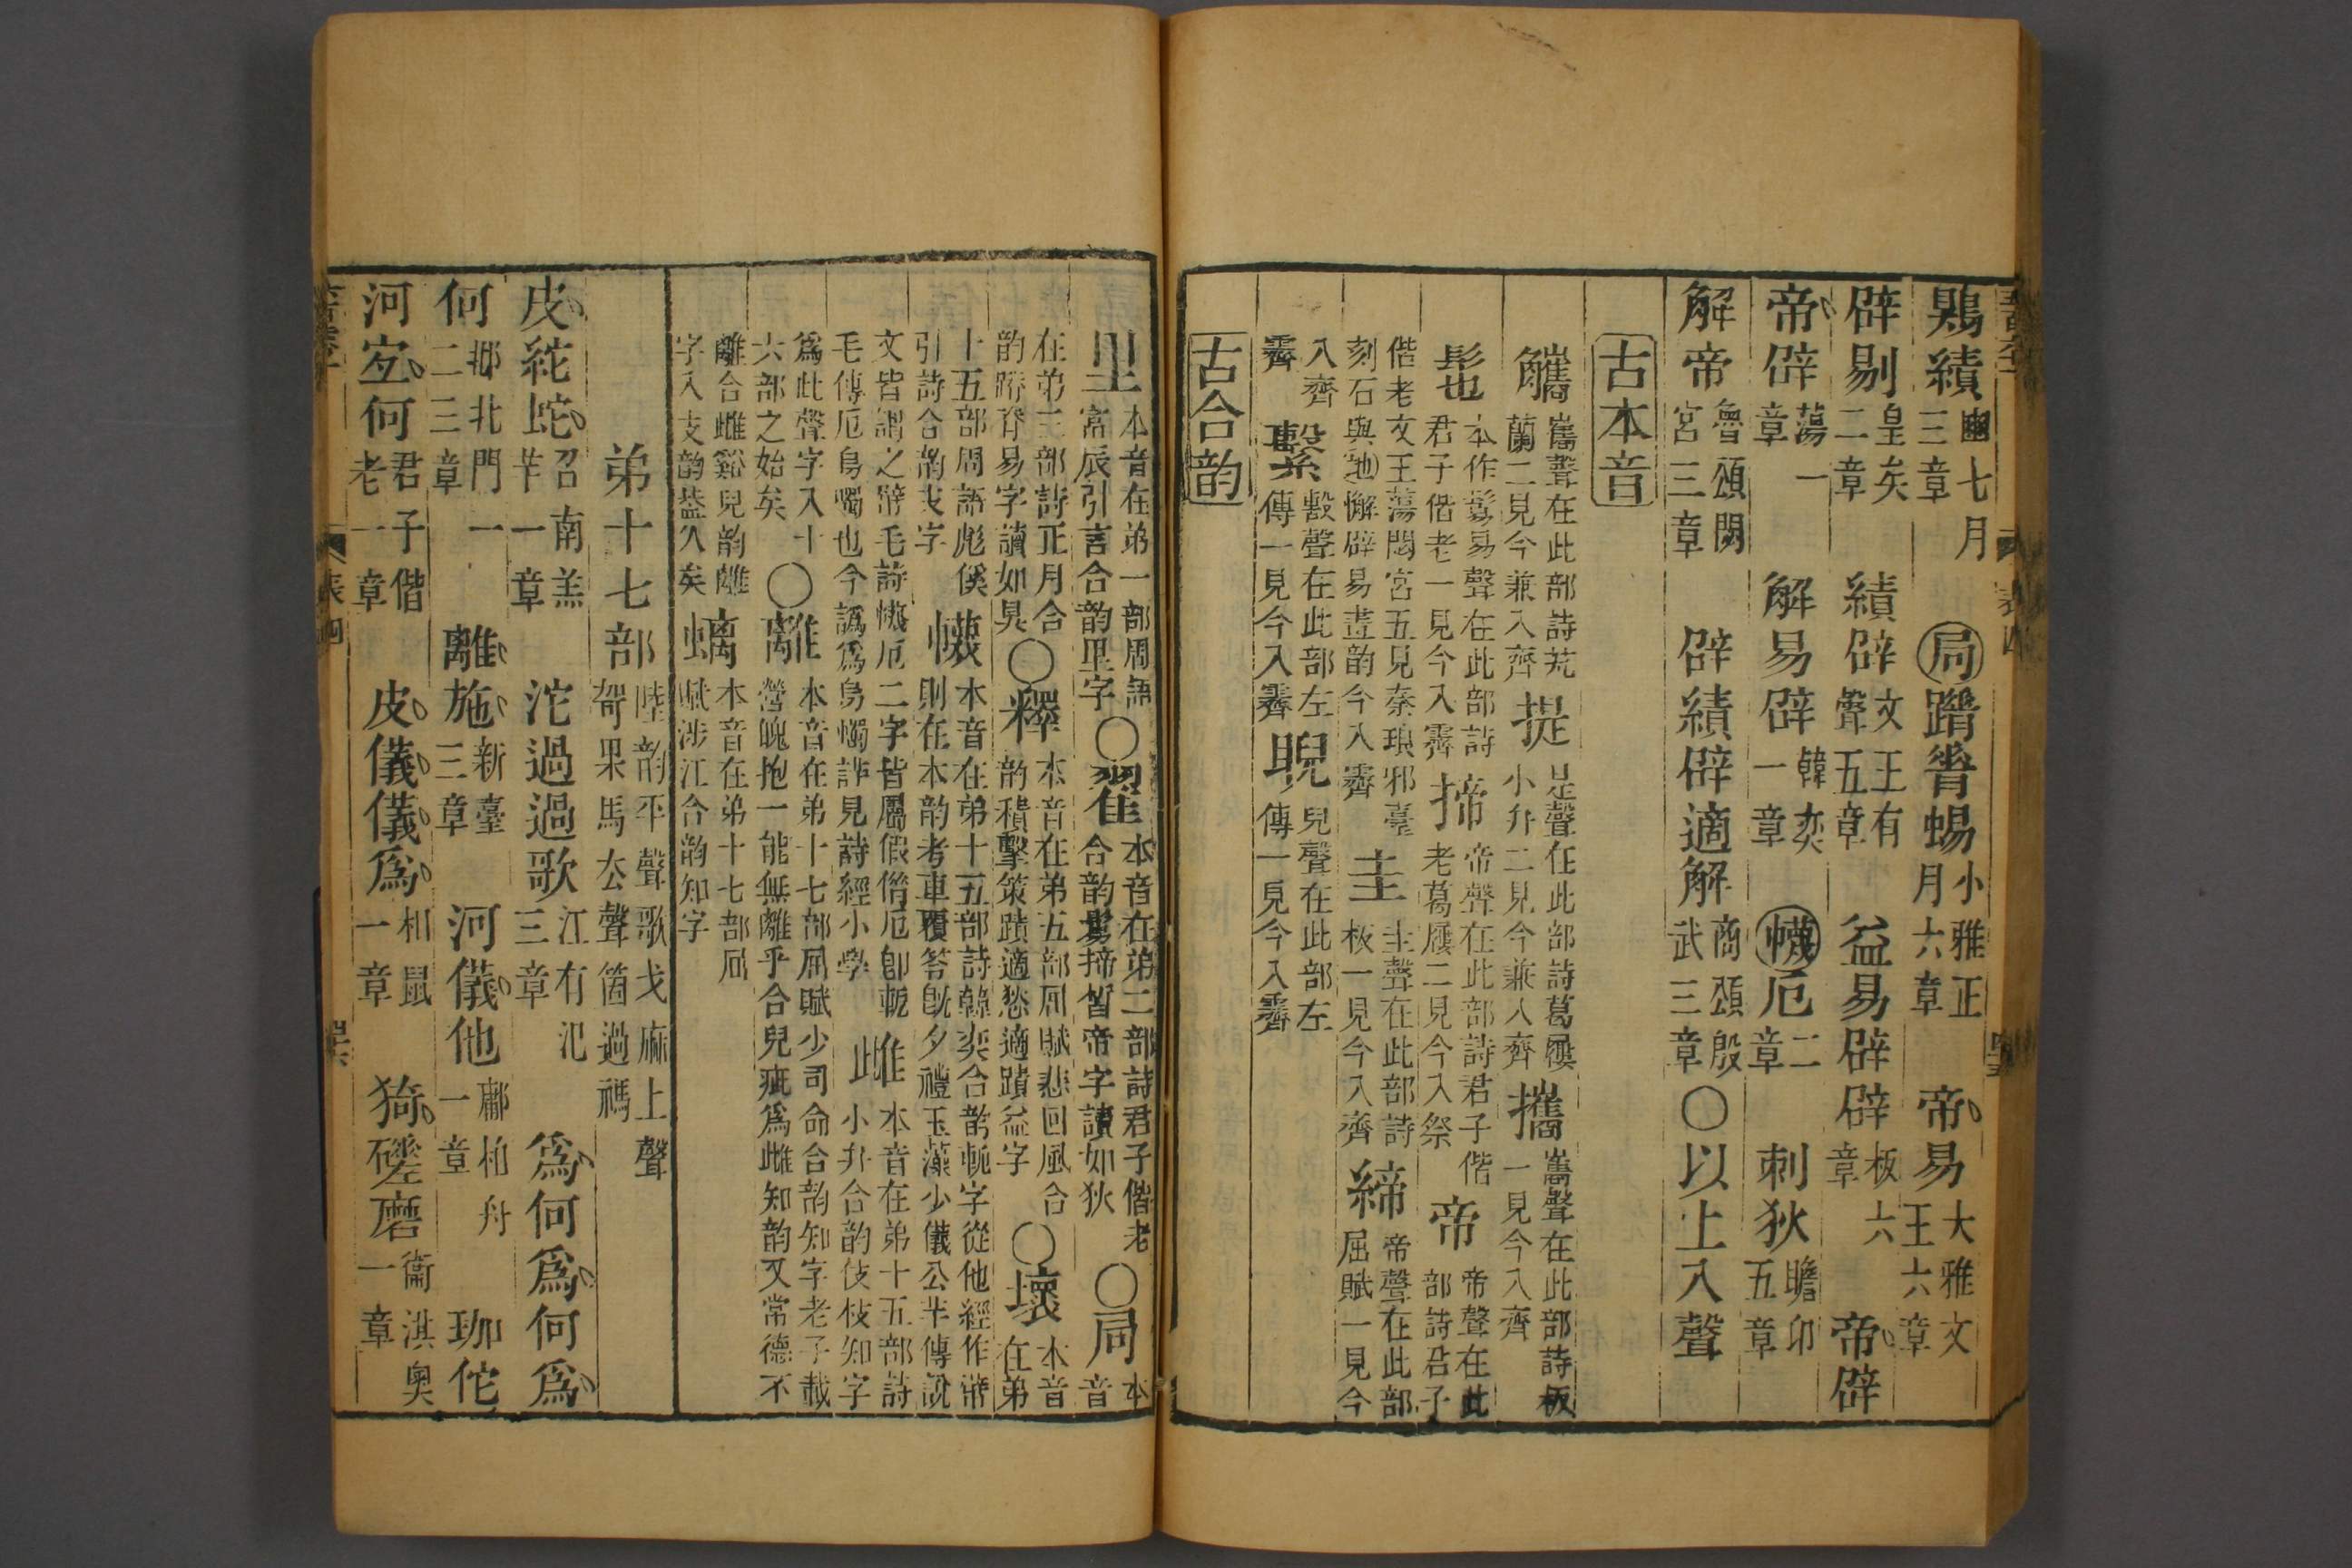 鶪績豳七月三章 局蹐脊蜴小雅正月六章 帝易大雅文王六章
辟剔皇矣二章 績辟文王有聲五章 益易辟辟板六章 帝辟
帝辟蕩一章 解易辟韓奕一章 幭厄二章 刺狄瞻卬五章
解帝魯頌閟宮三章 辟績辟適解商頌殷武三章○以上入聲
古本音
觿巂聲在此部詩芄蘭二見今兼入齊 提是聲在此部詩葛屨小弁二見今兼入齊 攜巂聲在此部詩板一見今入齊
髢本作鬄易聲在此部詩君子偕老一見今入霽 揥帝聲在此部詩君子偕老葛屨二見今入祭 帝帝聲在此部詩君子
偕老文王蕩閟宮五見秦琅邪臺刻石與地懈辟易畫韵今入霽 圭圭聲在此部詩板一見今入齊 締帝聲在此部屈賦一見今
入齊霽 繫毄聲在此部左傳一見今入霽 睨兒聲在此部左傳一見今入霽
古合韵
里本音在弟一部周語富辰引言合韵里字○翟本音在弟二部詩君子偕老合韵鬄揥晳帝字讀如狄○局本音
在弟三部詩正月合韵蹐脊易字讀如狊○釋本音在弟五部屈賦悲回風合韵積擊策蹟適愁適蹟益字○壞本音在弟
十五部周語彪傒引詩合韵支字 幭本音在弟十五部詩韓奕合韵軶字從他經作幦則在本韵考車覆笭旣夕禮玉藻少儀公羊傳說
文皆謂之幦毛詩幭厄二字皆屬假借厄卽軶毛傳厄烏蠋也今譌爲烏蠋詳見詩經小學 雌本音在弟十五部詩小弁合韵伎枝知字
爲此聲字入十六部之始矣○離本音在弟十七部屈賦少司命合韵知字老子載營魄抱一能無離乎合兒疵爲雌知韵又常德不
離合雌谿兒韵離字入支韵葢久矣 螭本音在弟十七部屈賦涉江合韵知字
弟十七部陸韵平聲歌戈麻上聲哿果馬去聲箇過禡
皮紽蛇召南羔羊一章 沱過過歌江有汜三章 爲何爲何爲
何邶北門一二三章 離施新臺三章 河儀他鄘柏舟一章 珈佗
河宐何君子偕老一章 皮儀儀爲相鼠一章 猗磋磨衞淇奧一章